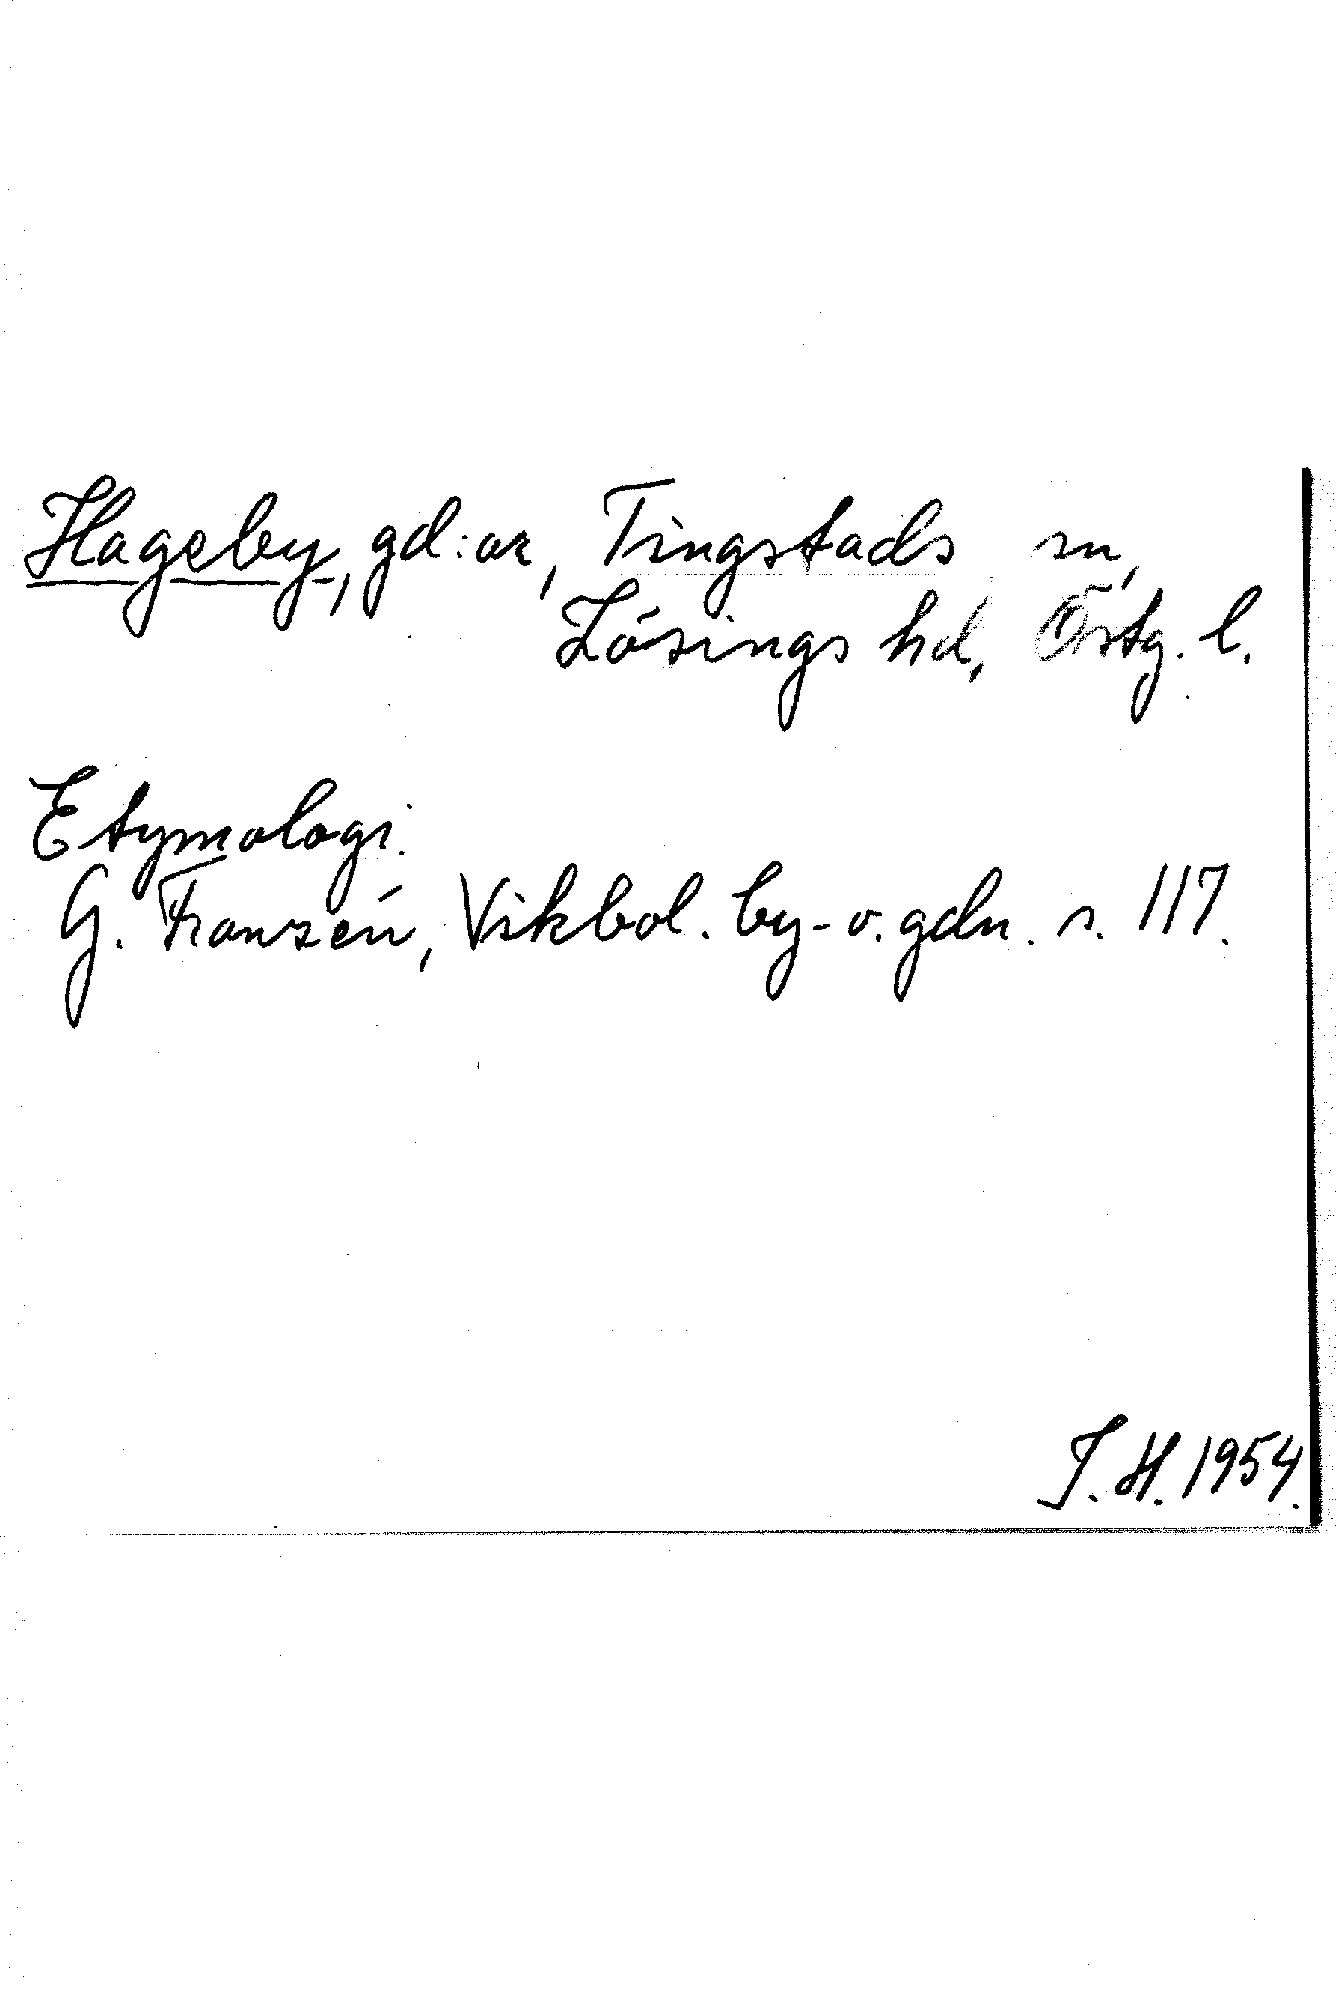 Hageby, gd:ar, Tingstads sn,
Lösings hd, Östg. l.
Etymologi.
G. Franzén, Vikbol. by- o. gdn. s. 117.
J. H. 1954.